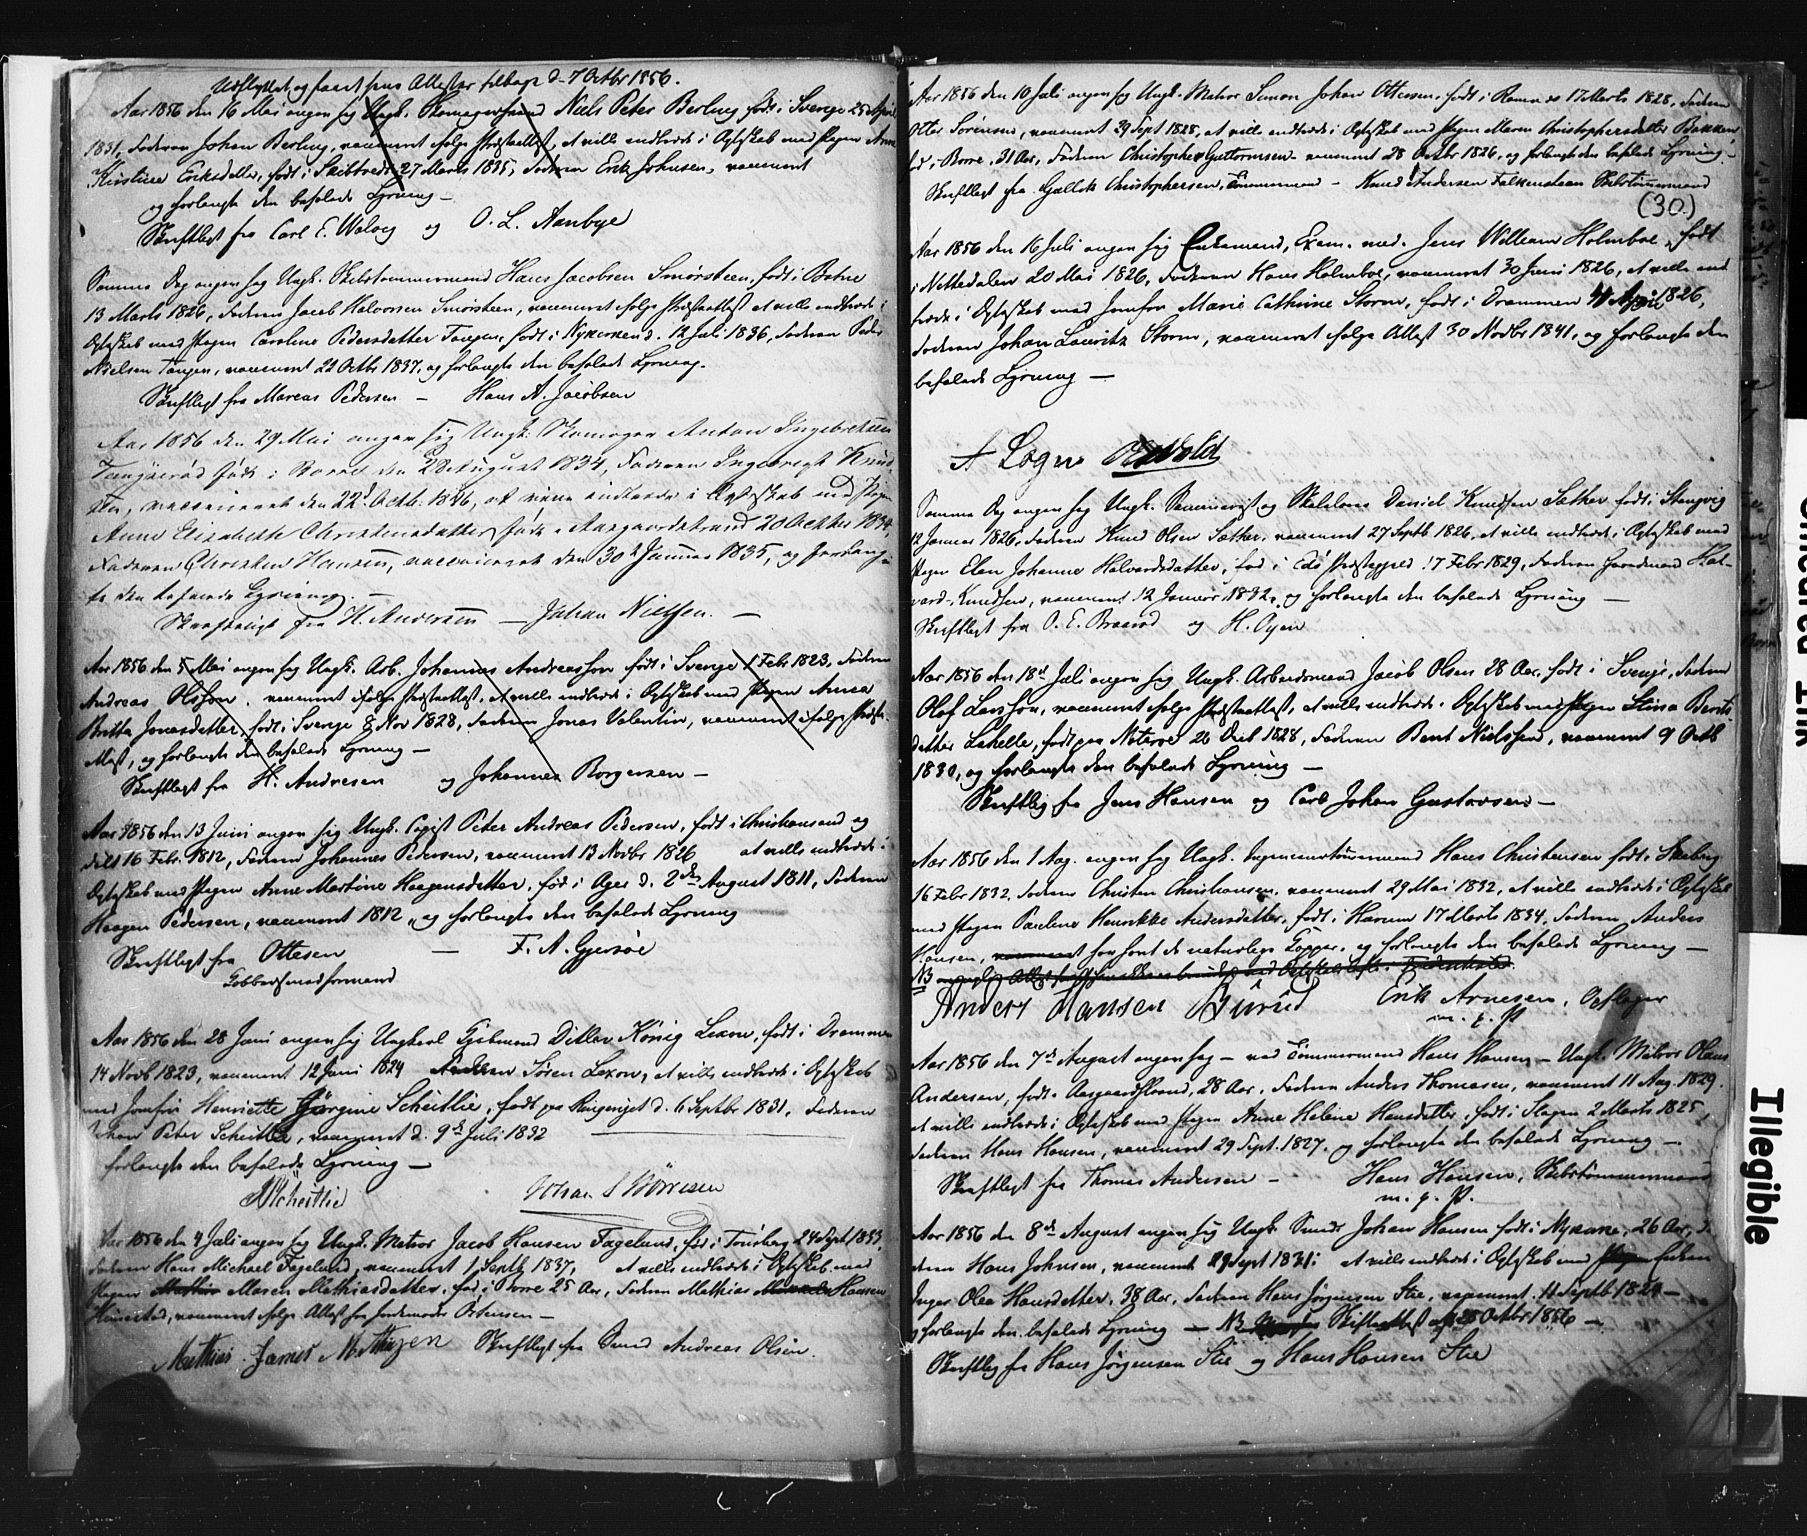 Udflyttet og faaet sine Attester tilbage d. 7 Octbr 1856.
Aar 1856 den 16 Mai angav sig Ungk. Skomagersvend Niels Peter Berling født i Sverige 25 April
1831, Faderen Johan Berling, vaccineret ifølge Præsteattest, at ville indtræde i Egteskab med Pigen Anne
Kristine Eriksdatter, født i Skibtvedt 27 Marts 1835, Faderen Erik Johnsen, vaccineret
og forlangte den befalede Lysning –
Skriftligt fra Carl E. Wolog og O. L. Aanbye
Samme Dag angav sig Ungk. Skibstømmermand Hans Jacobsen Smørsteen, født i Botne
13 Marts 1826, Faderen Jacob Halvorsen Smørsteen, vaccineret ifølge Præsteattest at ville indtræde i
Egteskab med Pigen Caroline Pedersdatter Tangen, født i Nykirken d. 14 Juli 1836, Faderen Peder
Nielsen Tangen, vaccineret 22 Octbr 1837, og forlangte den befalede Lysning.
Skriftligt fra Marcus Pedersen – Hans A. Jacobsen
Aar 1856 den 29 Mai angav sig Ungk. Skomager Anton Ingebretsen
født i Borre den 28 August 1834, Faderen Ingebregt Knud-
sen, vaccineret den 22d Octb. 1836, at ville indtræde i Egteskab med Pigen
Anne Elisabeth Christensdatter født i Aasgaardstrand 20 Octbr 1834,
Faderen Christen Hansen, vaccineret den 30t Januar 1835, og forlang-
te den befalede Lysning. –
Skriftligt fra H. Andersen – Johan Nielsen. –
Aar 1856 den 5 Mai angav sig Ungk. Arb. Johannes Andreasson født i Sverige 1 Febr 1823, Faderen
Andreas Olsson, vaccineret ifølge Præsteattest, at ville indtræde i Egteskab med Pigen Anna
Britta Jonasdatter, født i Sverige 8 Nov 1828, Faderen Jonas Valentin, vaccineret ifølge Præste-
Attest, og forlangte den befalede Lysning –
Skriftligt fra H. Andresen og Johannes Borgersen –
Aar 1856 den 13 Juni angav sig Ungk. Copist Peter Andreas Pedersen, født i Christiansand og
døbt 16 Febr. 1812, Faderen Johannes Pedersen, vaccineret 13 Novbr 1826 at ville indtræde i
Egteskab med Pigen Anne Martine Haagensdatter, fød i Ager d. 2den August 1811, Faderen
Haagen Pedersen, vaccineret 1812, og forlangte den befalede Lysning
Skriftligt fra Ottesen – F. A. Gjersøe
Gobbersmedsvend
Aar 1856 den 28 Juni angav sig Ungkarl Gjøbmand Ditlev König Lexow, født i Drammen
14 Novb 1823, vaccineret 12 Juni 1824 Faderen Søren Lexow, at ville indtræde i Egteskab
med Jomfru Henriette Jørgine Scheitlie, født paa Ringeriget d. 6 Septbr 1831, Faderen
Johan Peter Scheitlie, vaccineret d. 9de Juli 1832
forlangte den befalede Lysning –
Scheitlie Johan S Wørresen
Aar 1856 den 4 Juli angav sig Ungk. Matros Jacob Hansen Fageland, fød i Tønsberg 24 Sept 1833,
Faderen Hans Michael Fageland, vaccineret 1 Septb 1837, at ville indtræde i Egteskab med
Pigen Maren Mathiasdatter, fød i Borre 25 Aar, Faderen Mathias Hansen
vaccineret ifølge Attest fra Jordemoder
Mathias Skriftligt fra Smed Andreas Olsen.
Aar 1856 den 10 Juli angav sig Ungk. Matros Simon Johan Ottersen, født i Ramnes 17 Marts 1828, Faderen
Otter Sørensen, vaccineret 29 Sept 1828, at ville indtræde i Egteskab med Pigen Maren Christophersdatter Bakken
fød i Borre, 31 Aar, Faderen Christopher Guttormsen vaccineret 28 Octbr 1826, og forlangte den befalede Lysning –
Skriftligt fra Gullik Christophersen, Tømmermand – Knud Andersen Falkensteen Skibstømmermand
(30)
Aar 1856 den 16 Juli angav sig Enkemand, Exam. med. Jens William Holmboe, født
i Nittedalen 20 Mai 1826, Faderen Hans Holmboe, vaccineret 30 Juni 1826, at ville ind
træde i Egteskab med Jomfru Marie Cathrine Storm, født i Drammen 4 April 1826,
Faderen Johan Lauritz Storm, vaccineret ifølge Attest 30 Novbr 1841, og forlangte den
befalede Lysning –
Samme Dag angav sig Ungk. Seminarist og Skolelærer Daniel Knudsen Sæther født i Stangvig
12 Januar 1826, Faderen Knud Olsen Sæther, vaccineret 27 Septb 1826, at ville indtræde i Egteskab med
Pigen Elen Johanne Halvardsdatter, fød i Edø Præstegjeld 17 Febr 1829, Faderen Gaardmand Hal-
vard Knudsen, vaccineret 12 Januar 1832, og forlangte den befalede Lysning –
Skriftligt fra O. E. Braarod og H. Oyen
Aar 1856 den 18d Juli angav sig Ungk. Arbeidsmand Jacob Olsen 28 Aar, født i Sverige, Faderen
Olof Larsson, vaccineret ifølge Præsteattest, at ville indtræde i Egteskab med Pigen Stina Bents-
datter Lahelle, født paa Nøterø 26 Oct 1828, Faderen Bent Nielssen, vaccineret 9 Octb
1830, og forlangte den befalede Lysning –
Skriftlig fra Jens Hansen og Carl Johan Gustavsen –
Aar 1856 den 1 Aug. angav sig Ungk. Hans Christensen født i Skoberg
16 Febr 1832, Faderen Christen Christiansen, vaccineret 29 Mai 1832, at ville indtræde i Egteskab
med Pigen Pauline Henrikke Andersdatter, født i Horten 17 Marts 1834, Faderen Anders
Hansen, har havt de naturlige Kopper, og forlangte den befalede Lysning –
NB
Anders Hansen Erik Arnesen,
m. p. P
Aar 1856 den 7de August angav sig – ved Tømmermand Hans Hansen – Ungk. Matros Olaus
Andersen, født i Aasgaardstrand, 28 Aar, Faderen Anders Thomasen, vaccineret 11 Aug. 1829.
at ville indtræde i Egteskab med Pigen Anne Helene Hansdatter, født i Slagen 2 Marts 1825,
Faderen Hans Hansen, vaccineret 29 Sept. 1827. og forlangte den befalede Lysning –
Skriftligt fra Thomas Andersen – Hans Hansen, Skibstømmermand
m. p. P.
Aar 1856 den 8de August angav sig Ungk. Smed Johan Hansen født i Nykirke, 26 Aar, Fa-
deren Hans Johnsen, vaccineret 29 Sept 1831; at ville indtræde i Egteskab med Enken
Inger Olea Hansdatter, 38 Aar, Faderen Hans Jørgensen Stie, vaccineret 11 Septb 1824 –
og forlangte den befalede Lysning – NB Skifteattest af 25 Octbr 1856 –
Skriftlig fra Hans Jørgensen Stie og Hans Hansen Stie
Illegible